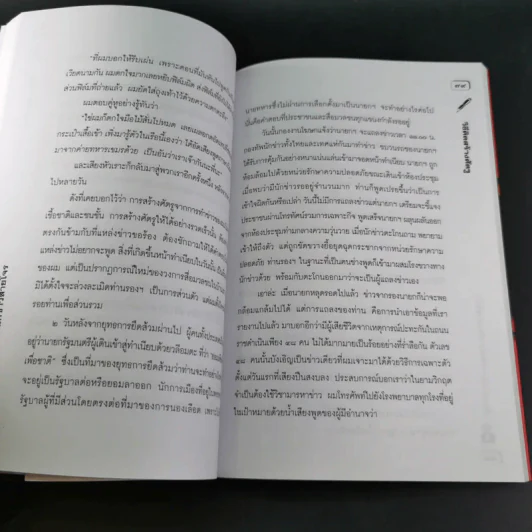 "ที่ผมบอกให้รีบเผ่น เพราะตอนที่
เวียดนามกัน ผมตกใจมากเลยหยิบฟิล์มผิด
ส่วนฟิล์มที่ถ่ายแล้ว ผมยัดใส่ถุงเท้าไว้
ผมตอบคู่หูอย่างรู้ทันว่า
"ใช่ผมก็ตกใจมือไม้สั่นไปหมด
กระเป๋าเสื้อเช้า เพิ่งมารู้ตัวในเรือนี้เองว่า
มาจากค่ายทหารเขมรด้วย เป็นอันว่าเราเจ๊ากันนะพี่นะ"
และเสียงหัวเราะก็กลับมาสู่พวกเราอีกครั้งหนึ่ง
ไปหลายวัน
ดังที่เคยบอกไว้ว่า การสร้างศัตรูจากการทำข่าว
เชื้อชาติและชนชั้น การสร้างศัตรูให้ได้อย่างรวดเร็วนั้น
ตรงกันข้ามกับที่แหล่งข่าวขอร้อง ต้องซักถามให้ได้
แหล่งข่าวไม่อยากจะพูด สิ่งที่เกิดขึ้นหน้าทำเนียบในวันนั้น
ของผม แต่เป็นปรากฏการณ์ใหม่ของวงการสื่อมวลชน
มิได้ตั้งใจจะล่วงละเมิดท่านรองฯ เป็นการส่วนตัว
รอยท่านเพื่อส่วนรวม
๒ วันหลังจากยุทธการยึดส้วมผ่านไป ผู้คนทั้งประเทศ
อยู่ว่านายกรัฐมนตรีผู้เดินเข้าสู่ทำเนียบด้วยวลีอมตะ ที่ว่า
เพื่อชาติ" ซึ่งเป็นที่มาของยุทธการยึดส้วมว่าท่านจะทำอย่างไร
จะอยู่เป็นรัฐบาลต่อหรือยอมลาออก นักการเมืองที่
รัฐบาลผู้ที่มีส่วนโดยตรงต่อที่มาของการนองเลือด
นายทหารซึ่งไม่ผ่านการเลือกตั้งมาเป็นนายกฯ จะทำอย่างไรต่อไป
นั่นคือคำตอบที่ประชาชนและสื่อมวลชนทุกแขนงกำลังรออยู่
วันนั้นกองงานโฆษกแจ้งว่านายกฯ จะแถลงข่าวเวลา
กองทัพนักข่าวทั้งไทยและเทศแห่กันมาทำข่าว ขบวนรถของนายกฯ
ได้รับการคุ้มกันอย่างหนาแน่นแล่นเข้ามาจอดหน้าทำเนียบ นายกฯ ถูก
ห้อมล้อมไปด้วยหน่วยรักษาความปลอดภัยขณะเดินเข้าห้องประชุม
เมื่อพบว่ามีนักข่าวรออยู่จำนวนมาก ท่านก็พูดเปรยขึ้นว่าเป็นการ
เข้าใจผิดกันหรือเปล่า วันนี้ไม่มีการแถลงข่าวแต่นายกฯ เตรียมจะชี้แจง
ประชาชนผ่านโทรทัศน์รวมการเฉพาะกิจ พูดเสร็จนายกฯ ผลุนผลันออก
จากห้องประชุมท่ามกลางความวุ่นวาย เมื่อนักข่าวตะโกนถาม พยายาม
เข้าให้ถึงตัว แต่ถูกขัดขวางยื้อยุดฉุดกระชากจากหน่วยรักษาความ
ปลอดภัย ท่านรองฯ ในฐานะที่เป็นคนช่างพูดก็เข้ามาผสมโรงขวางทาง
นักข่าวด้วย พร้อมกับตะโกนออกมาว่าจะเป็นผู้แถลงข่าวเอง
เอาล่ะ เมื่อนายกหลุดรอดไปแล้ว ข่าวจากรองนายกก็น่าจะพอ
กล้อมแกล้มไปได้ แต่การแถลงของท่าน คือการนำเอาข้อมูลที่เรา
รายงานไปแล้ว มาบอกอีกว่ามีผู้เสียชีวิตจากเหตุการณ์ปะทะกันในถนน
ราชดำเนินเพียง ๔๘ คน ไม่ได้มากมายเป็นร้อยอย่างที่ร่ำลือกัน ตัวเลข
๔๘ คนนั้นบังเอิญเป็นข่าวเดี่ยวที่ผมเจาะมาได้ด้วยวิธีการเฉพาะตัว
ตั้งแต่วันแรกที่เสียงปืนสงบลง ประสบการณ์บอกเราว่าในยามวิกฤต
จำเป็นต้องใช้วิชามารหาข่าว ผมโทรศัพท์ไปยังโรงพยาบาลทุกโรงที่อยู่
ในเป้าหมายด้วยน้ำเสียงพูดของผู้มีอำนาจว่า